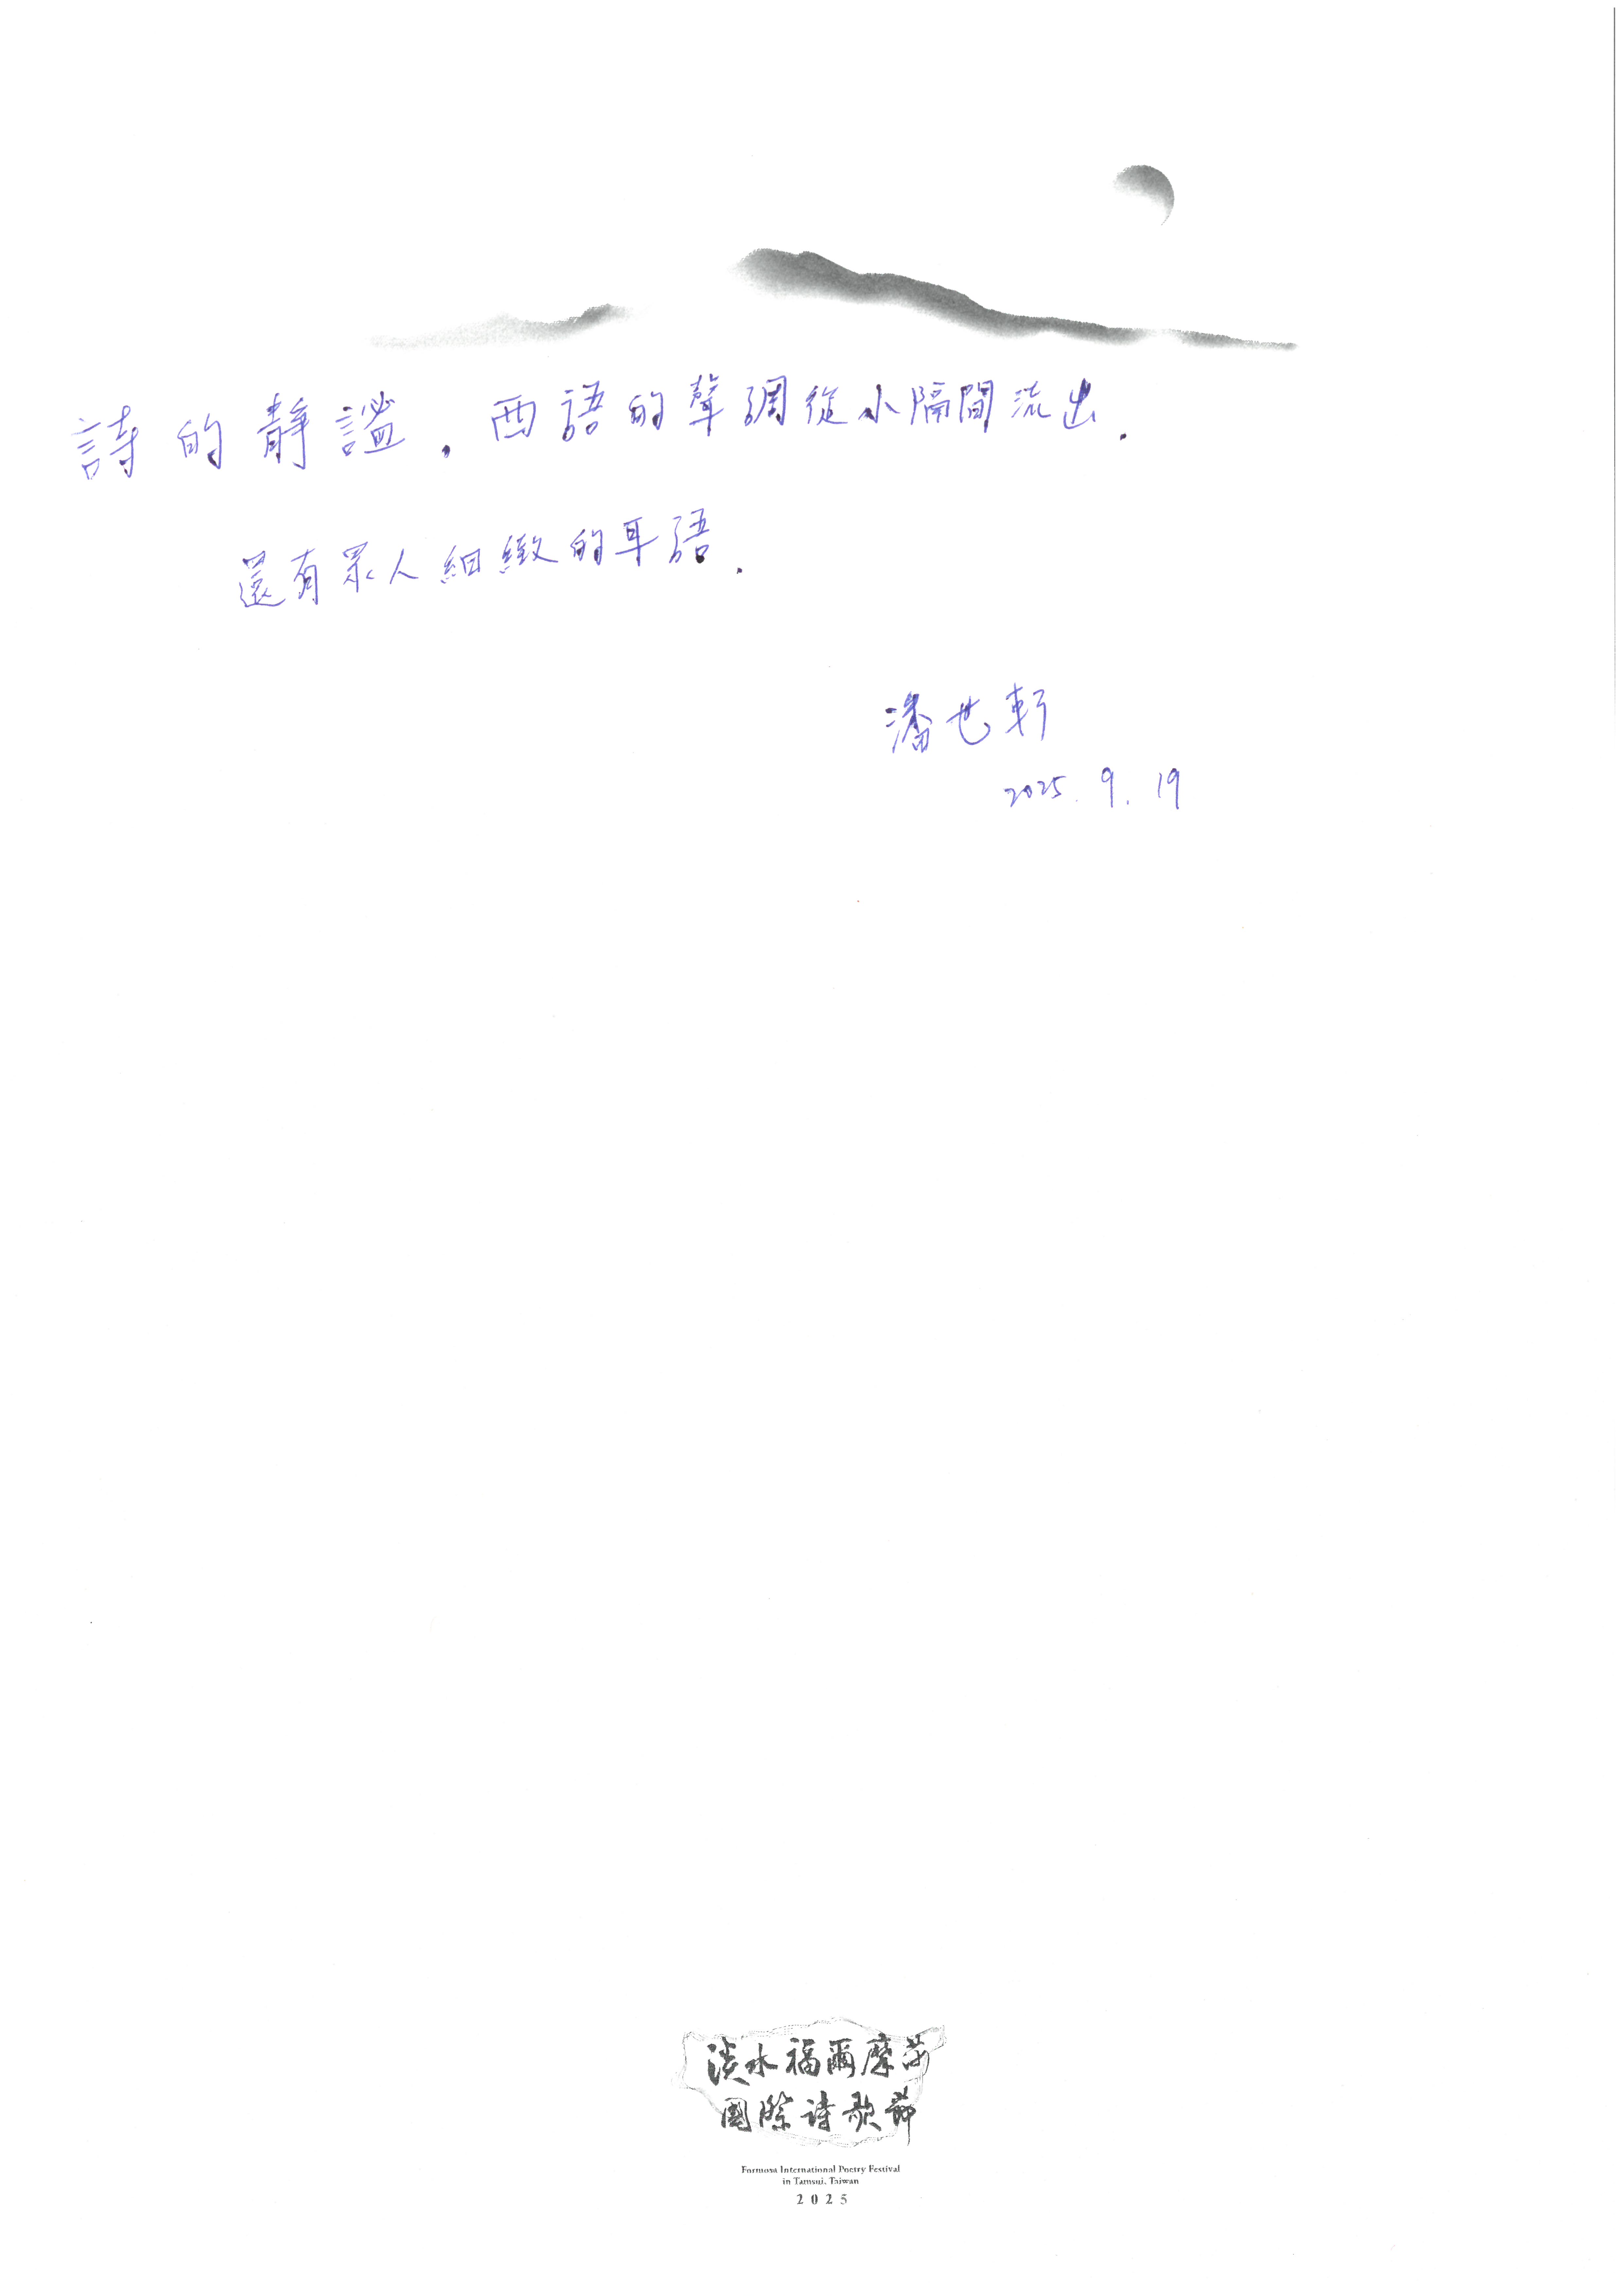 詩的靜謐.西語的聲調從小隔間流出.
還有眾人細緻的耳語.
潘世軒
2025.9.19
淡水福爾摩莎
國際詩歌節
Formosa International Poetry Festival
in Tamsui, Taiwan
2025